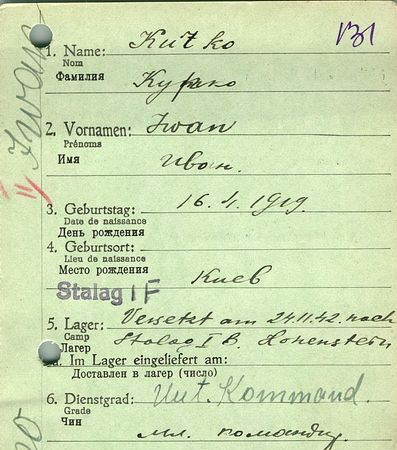 131
1. Name: Kutko
Nom
Фамилия
2. Vornamen: Iwan
Prénoms
Имя Иван.
3. Geburtstag: 16. 4. 1919.
Date de naissance
День рождения
4. Geburtsort:
Lieu de naissance
Место рождения Киев
Stalag I F
5. Lager: Versetzt am 24.11.42. nach
Camp Stalag I B. Hohenstein
Лагер
5a. Im Lager eingeliefert am:
Доставлен в лагер (число)
6. Dienstgrad: Unt. Kommand.
Grade
Чин мл. командир
Iwan